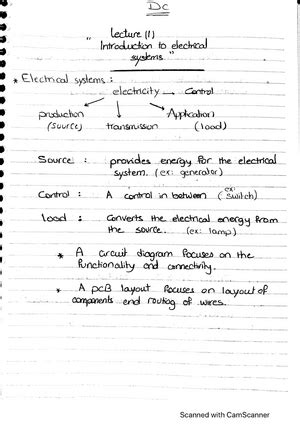 DC
Lecture (1)
" Introduction to electrical
systems "
* Electrical systems :
electricity → Control
production transmission Application
(source) (load)
Source : provides energy for the electrical
system. (ex: generator)
Control : A control in between (ex: switch)
load : Converts the electrical energy from
the source. (ex: lamp)
* A circuit diagram focuses on the
functionality and connectivity.
* A pcB layout focuses on layout of
components and routing of wires.
Scanned with CamScanner